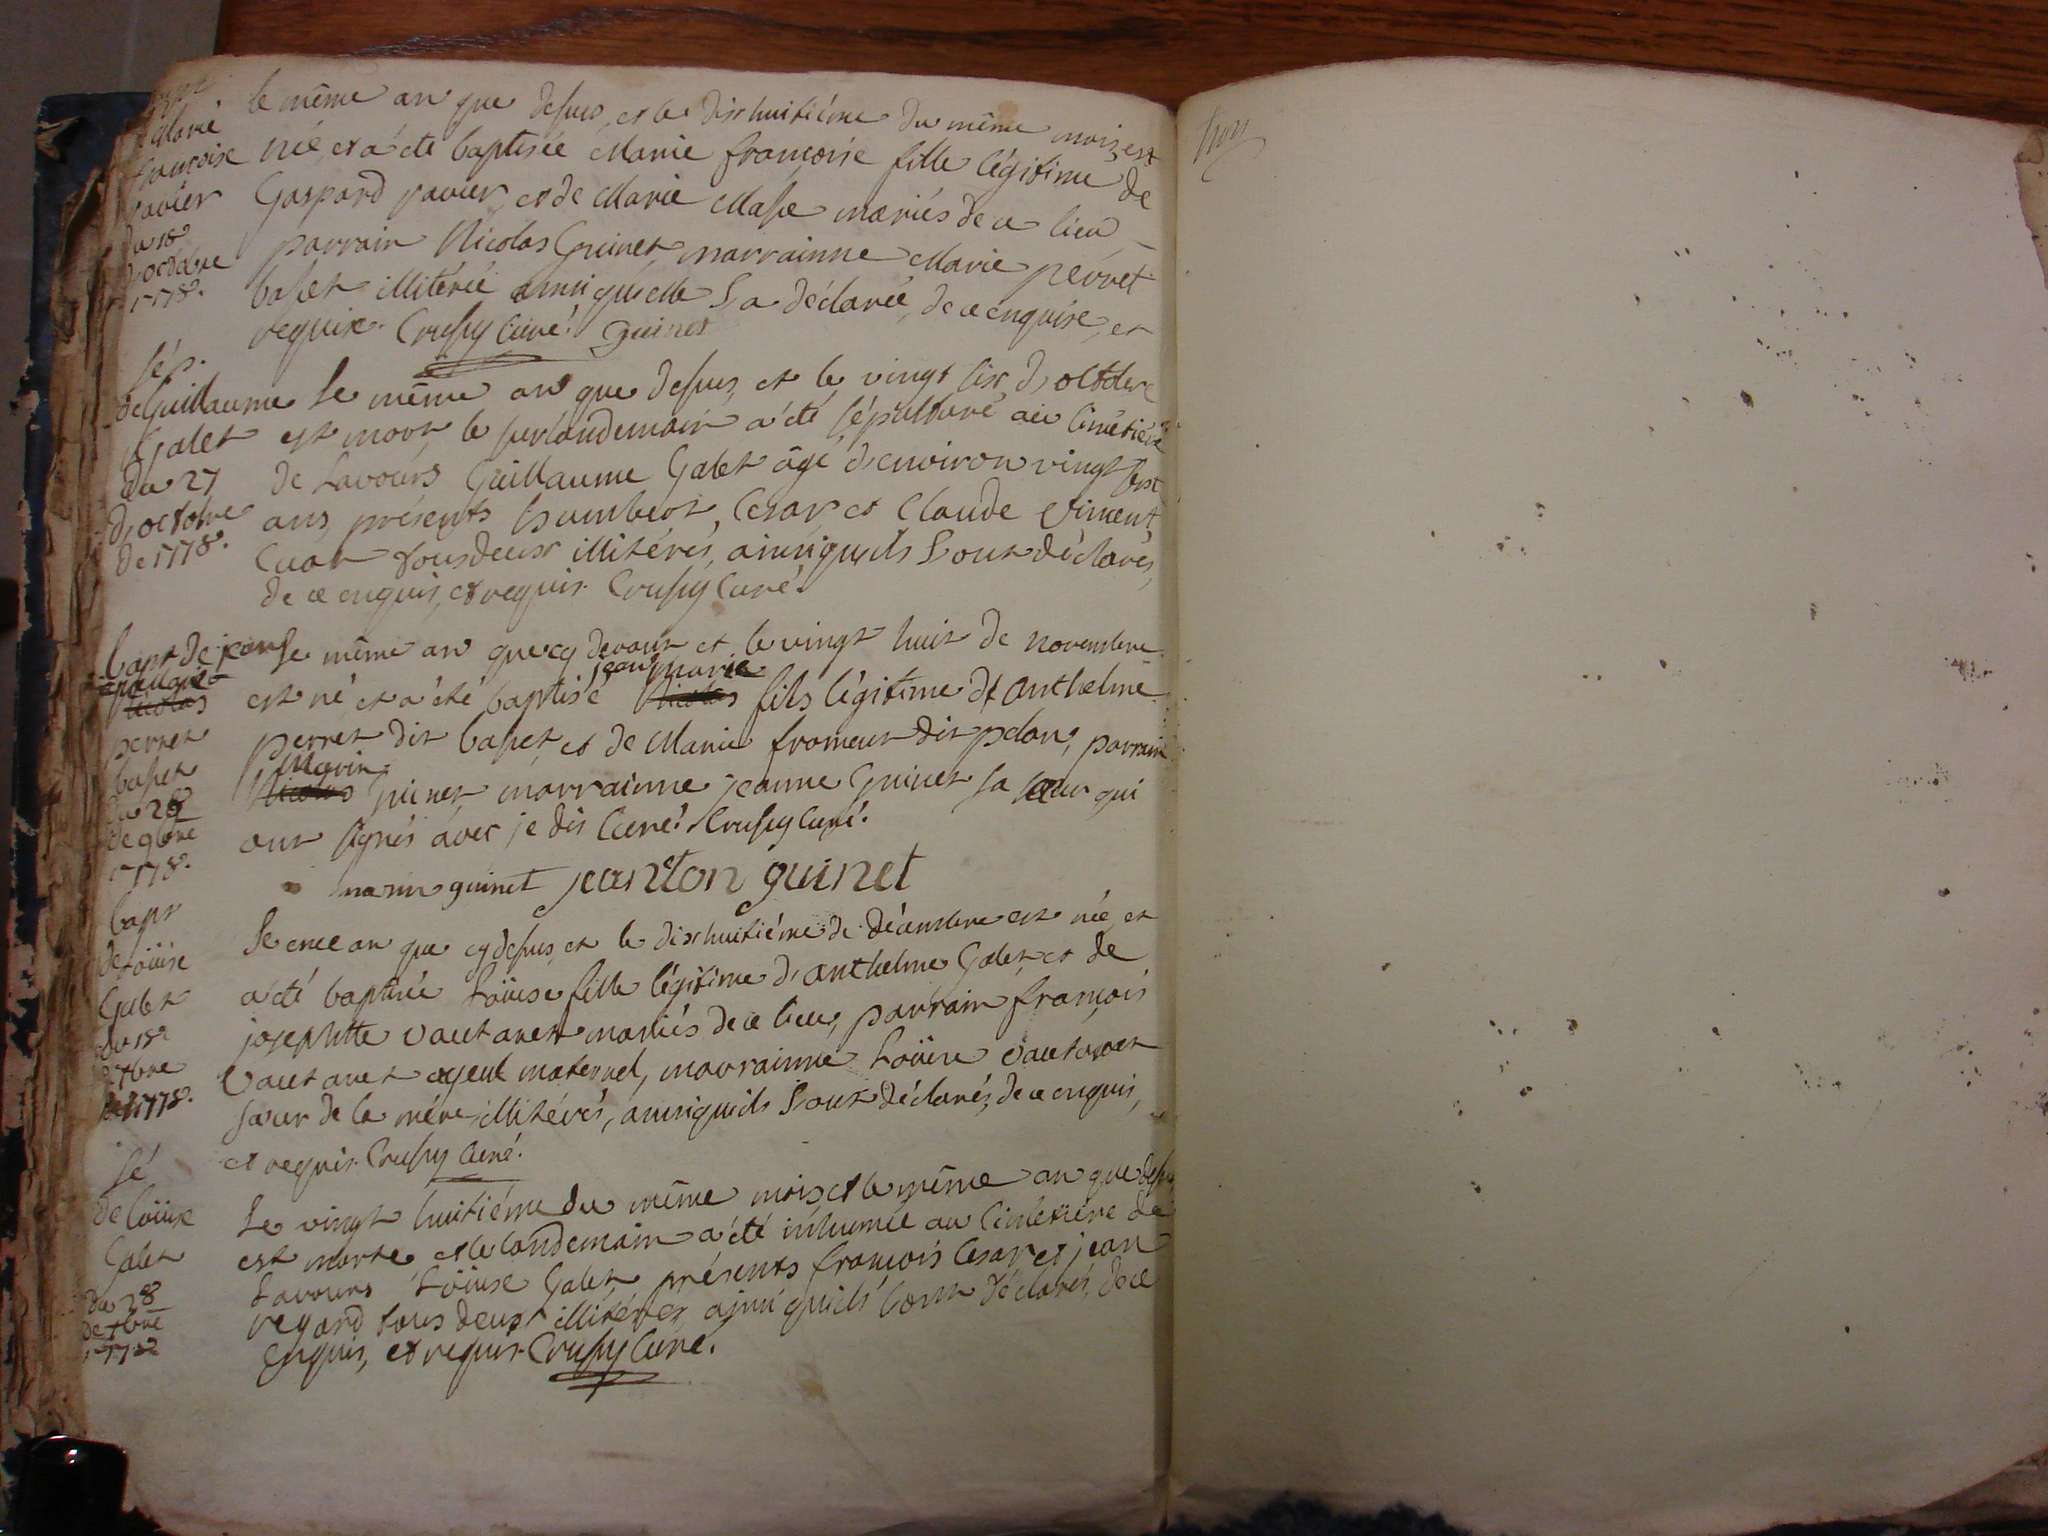 Marie
françoise
ravier
du 18
d'octobre
1778.
le même an que desus, et le dixhuitiéme du même mois, est
née, et a été baptisée Marie françoise fille légitime de
Gaspard ravier, et de Marie Masse mariés de ce lieu
parrain Nicolas Guinet, marrainne Marie perret
basset illiterée ainsi quelle l'a déclarée, de ce enquise, et
requise. Crussy Curé. guinet
sép.
de Guillaume
Galet
du 27
d'octobre
de 1778.
Le même an que desus, et le vingt six d'octobre
est mort, le surlandemain a été sépulturé au Cimetiére
de Lavours Guillaume Galet âgé d'environ vingt sept
ans, présents humbert Cesar et Claude Vincent
Cuar tous deux illiterés, ainsi quils l'ont déclarés,
de ce enquis, et requis. Crussy Curé.
bapt. de jean
marie
Nicolas
perret
basset
du 28
de 9bre
1778.
Le même an que cy devant et le vingt huit de novembre
jean marie
est né, et a été baptisé Nicolas fils légitime d'anthelme
perret dit basset, et de Marie fromeur dit pelan, parrain
Marin
Nicolas guinet, marrainne jeanne Guinet sa sœur qui
ont signés avec je dis Curé. Crussy Curé.
marin guinet jeanton guinet
bapt.
de Loüise
Galet
du 18
xbre
1778.
Le meme an que cy desus, et le dixhuitiéme de décembre est née, et
a été baptisée Loüise fille légitime d'anthelme Galet, et de
josephtte vautaret mariés de ce lieu, parrain françois
Vautaret ayeul maternel, marrainne Loüise Vautaret
sœur de la mére illiterés, ainsi quils l'ont déclarés, de ce enquis,
et requis. Crussy Curé.
sé
de Loüise
Galet
du 28
de xbre
1778
Le vingt huitiéme du même mois, et le même an que desus
est morte, et le landemain a été inhumée au Cimétiére de
Lavours Loüise Galet, présents françois Cesar, et jean
regard tous deux illiterés, ainsi quils l'ont déclarés, de ce
enquis, et requis. Crussy Curé.